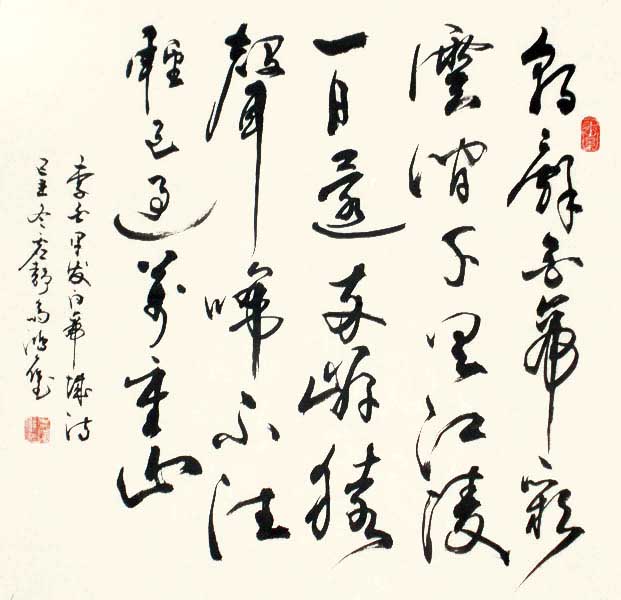 朝辭白帝彩
雲間千里江陵
一日還兩岸猿
聲啼不住
輕已過萬重山
李白早发白帝城诗
冬